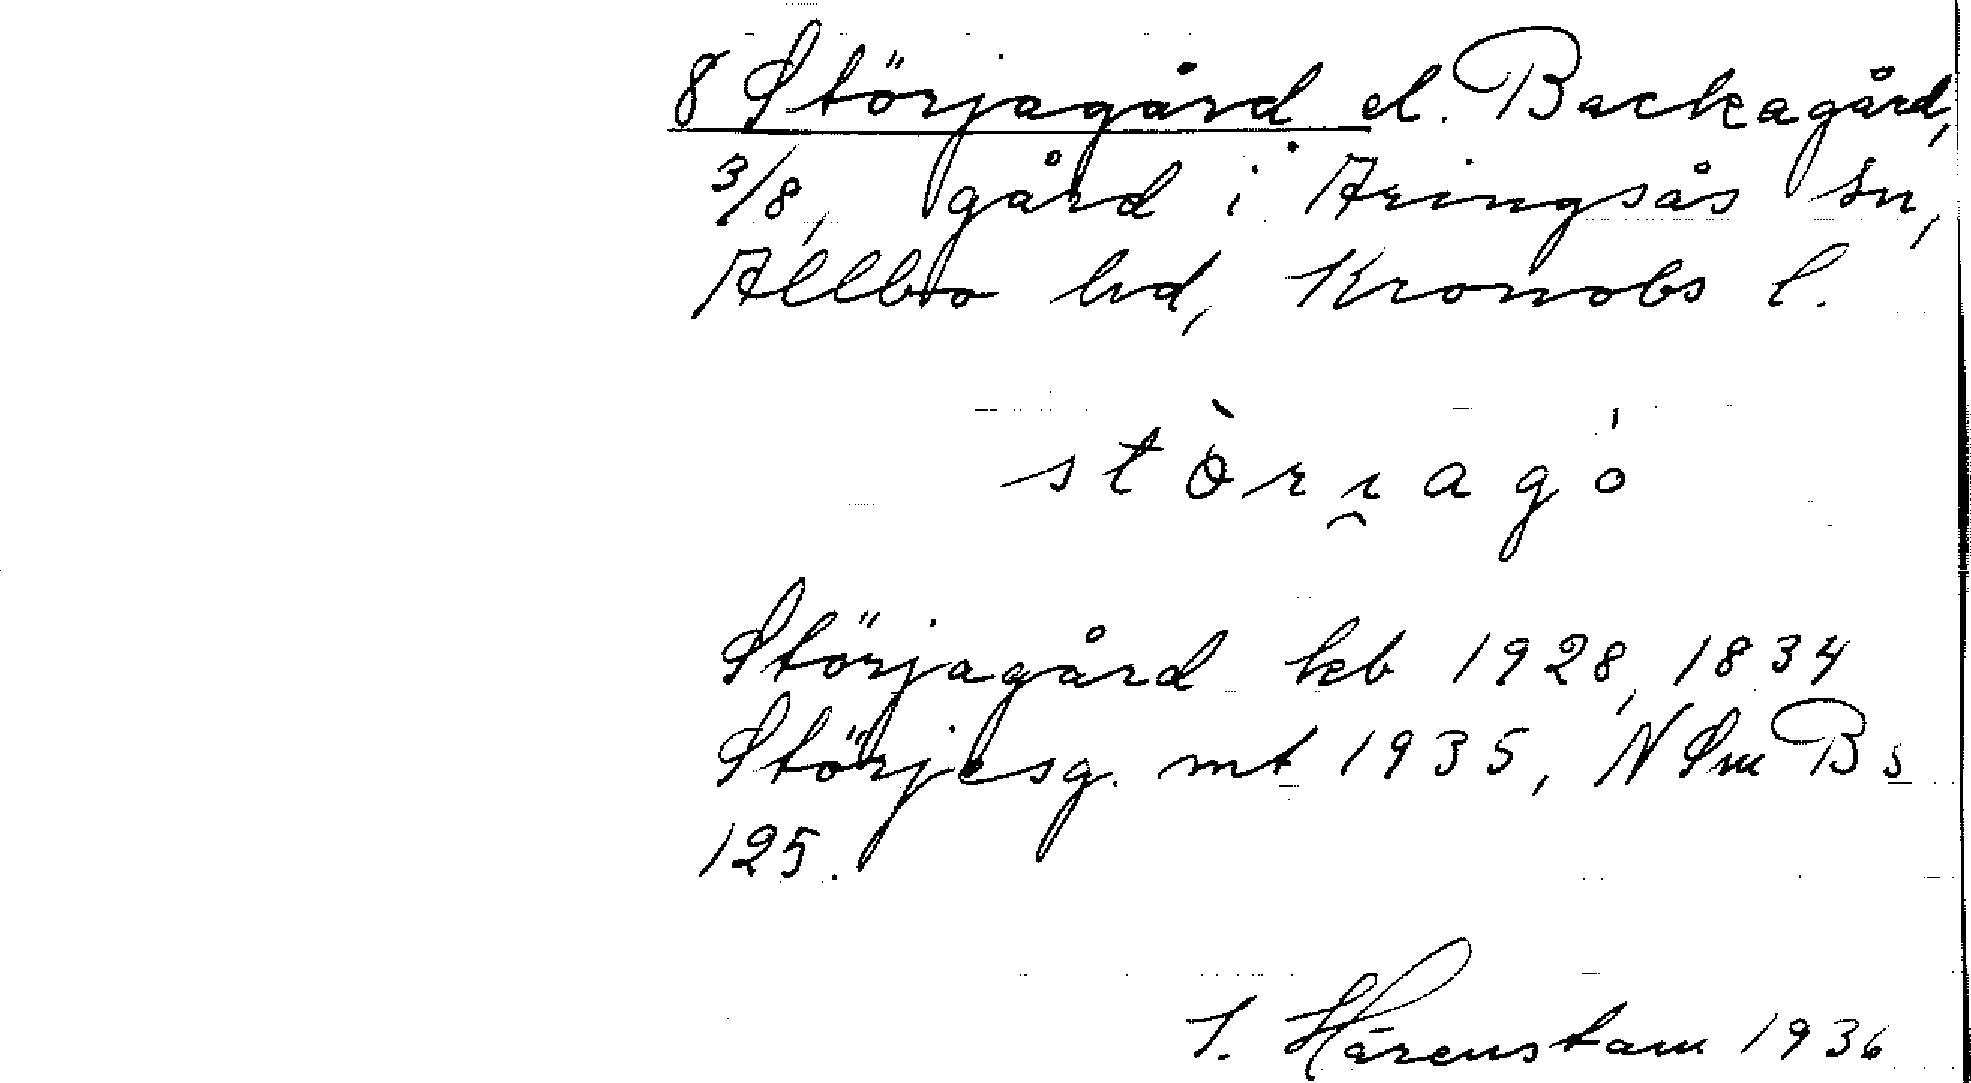 8 Störjagård el. Backagård,
3/8, gård i Aringsås sn,
Allbo hd, Kronobs l.
stò̀rı̯agó
Störjagård kb 1928, 1834
Störjesg. mt 1935, N Sm B s
125.
Hårenstam 1936